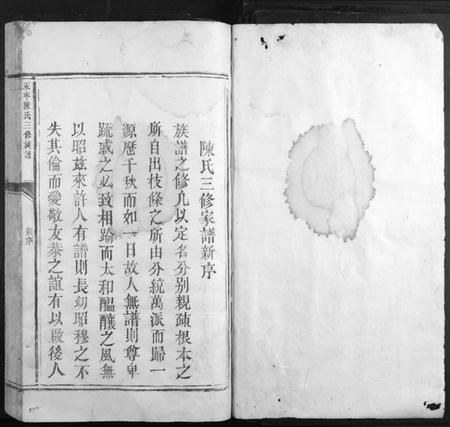 陳氏三修家譜新序
族譜之修凡以定名分別親疎根本之
所自出枝條之所由分統萬派而歸一
源歷千秋而如一日故人無譜則尊卑
疏戚之必致相踰而太和醞釀之風無
以昭兹來許人有譜則長幼昭穆之不
失其倫而愛敬友恭之誼有以啟後人
陳氏三修族譜
新序